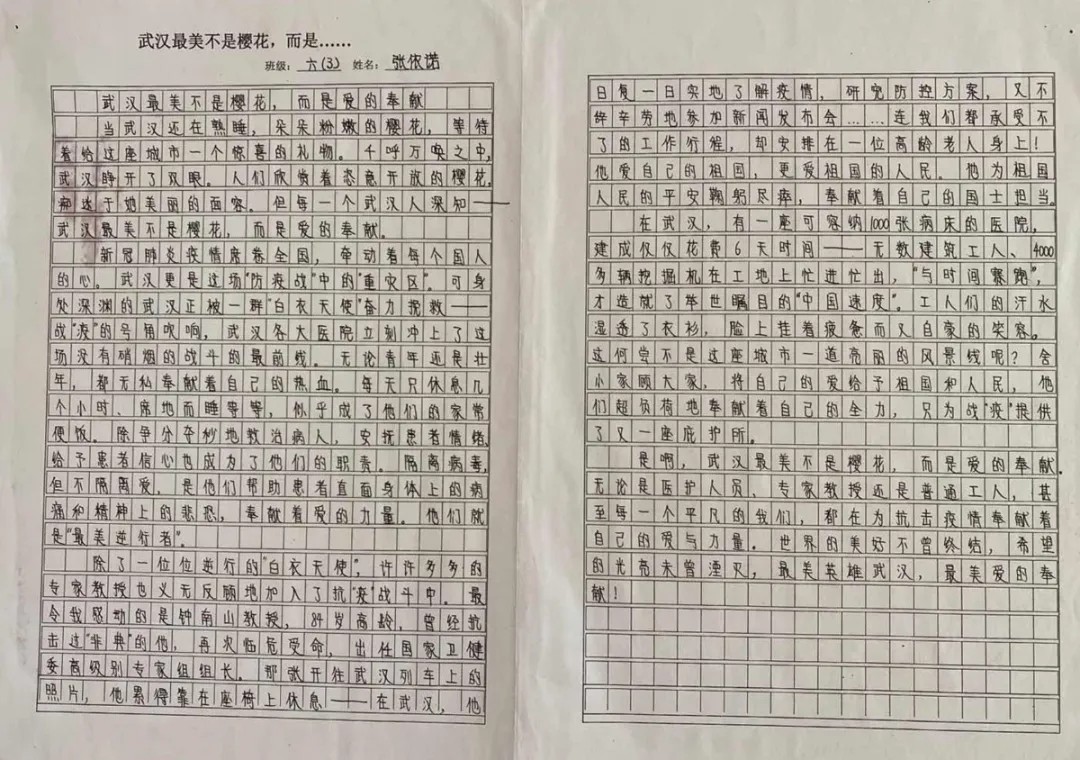 武汉最美不是樱花，而是……
班级：六(3) 姓名：张依诺
武汉最美不是樱花，而是爱的奉献
当武汉还在熟睡，朵朵粉嫩的樱花，等待
着给这座城市一个惊喜的礼物。千呼万唤之中，
武汉睁开了双眼。人们欣赏着恣意开放的樱花，
痴迷于她美丽的面容。但每一个武汉人深知——
武汉最美不是樱花，而是爱的奉献。
新冠肺炎疫情席卷全国，牵动着每个国人
的心。武汉更是这场“防疫战”中的“重灾区”。可身
处深渊的武汉正被一群“白衣天使”奋力挽救——
战“疫”的号角吹响，武汉各大医院立刻冲上了这
场没有硝烟的战斗的最前线。无论青年还是壮
年，都无私奉献着自己的热血。每天只休息几
个小时、席地而睡等等，似乎成了他们的家常
便饭。除争分夺秒地救治病人，安抚患者情绪，
给予患者信心也成为了他们的职责。隔离病毒，
但不隔离爱，是他们帮助患者直面身体上的病
痛和精神上的悲恐，奉献着爱的力量。他们就
是“最美逆行者”。
除了一位位逆行的“白衣天使”，许许多多的
专家教授也义无反顾地加入了抗“疫”战斗中。最
令我感动的是钟南山教授，84岁高龄，曾经抗
击过“非典”的他，再次临危受命，出任国家卫健
委高级别专家组组长。那张开往武汉列车上的
照片，他累得靠在座椅上休息——在武汉，他
日复一日实地了解疫情，研究防控方案，又不
辞辛劳地参加新闻发布会……连我们都承受不
了的工作行程，却安排在一位高龄老人身上！
他爱自己的祖国，更爱祖国的人民。他为祖国
人民的平安鞠躬尽瘁，奉献着自己的国士担当。
在武汉，有一座可容纳1000张病床的医院，
建成仅仅花费6天时间——无数建筑工人、4000
多辆挖掘机在工地上忙进忙出，“与时间赛跑”，
才造就了举世瞩目的“中国速度”。工人们的汗水
湿透了衣衫，脸上挂着疲惫而又自豪的笑容。
这何尝不是这座城市一道亮丽的风景线呢？舍
小家顾大家，将自己的爱给予祖国和人民，他
们超负荷地奉献着自己的全力，只为战“疫”提供
了又一座庇护所。
是啊，武汉最美不是樱花，而是爱的奉献。
无论是医护人员、专家教授还是普通工人，甚
至每一个平凡的我们，都在为抗击疫情奉献着
自己的爱与力量。世界的美好不曾终结，希望
的光亮未曾湮灭，最美英雄武汉，最美爱的奉
献！